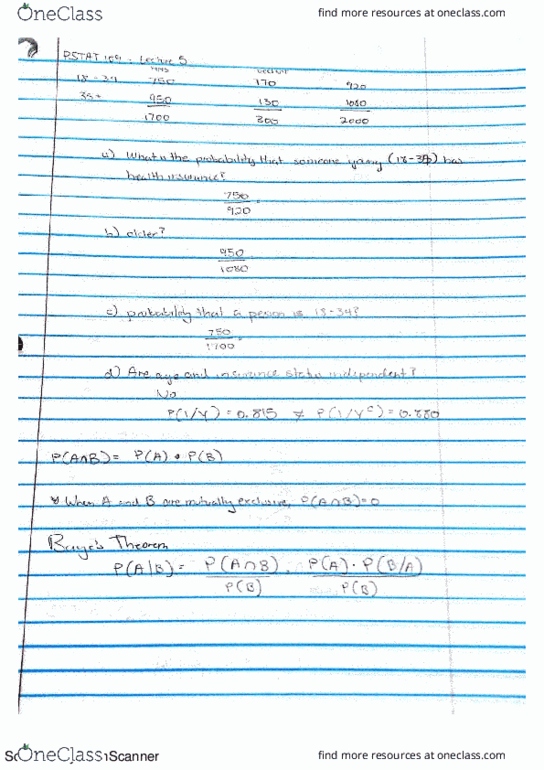 OneClass find more resources at oneclass.com
PSTAT 109 - Lecture 5
18-34 750 170 920
35+ 950 130 1080
1700 300 2000
a) What is the probability that someone young (18-34) has
health insurance?
750
920 =
b) older?
950
1080
c) probability that a person is 18-34?
750
1700
d) Are age and insurance status independent?
No
P(I/Y) = 0.815 ≠ P(I/Y^c) = 0.880
P(A∩B) = P(A) • P(B)
When A and B are mutually exclusive, P(A∩B)=0
Baye's Theorem
P(A|B) = P(A∩B) = P(A) · P(B/A)
P(B) P(B)
OneClass Scanner find more resources at oneclass.com